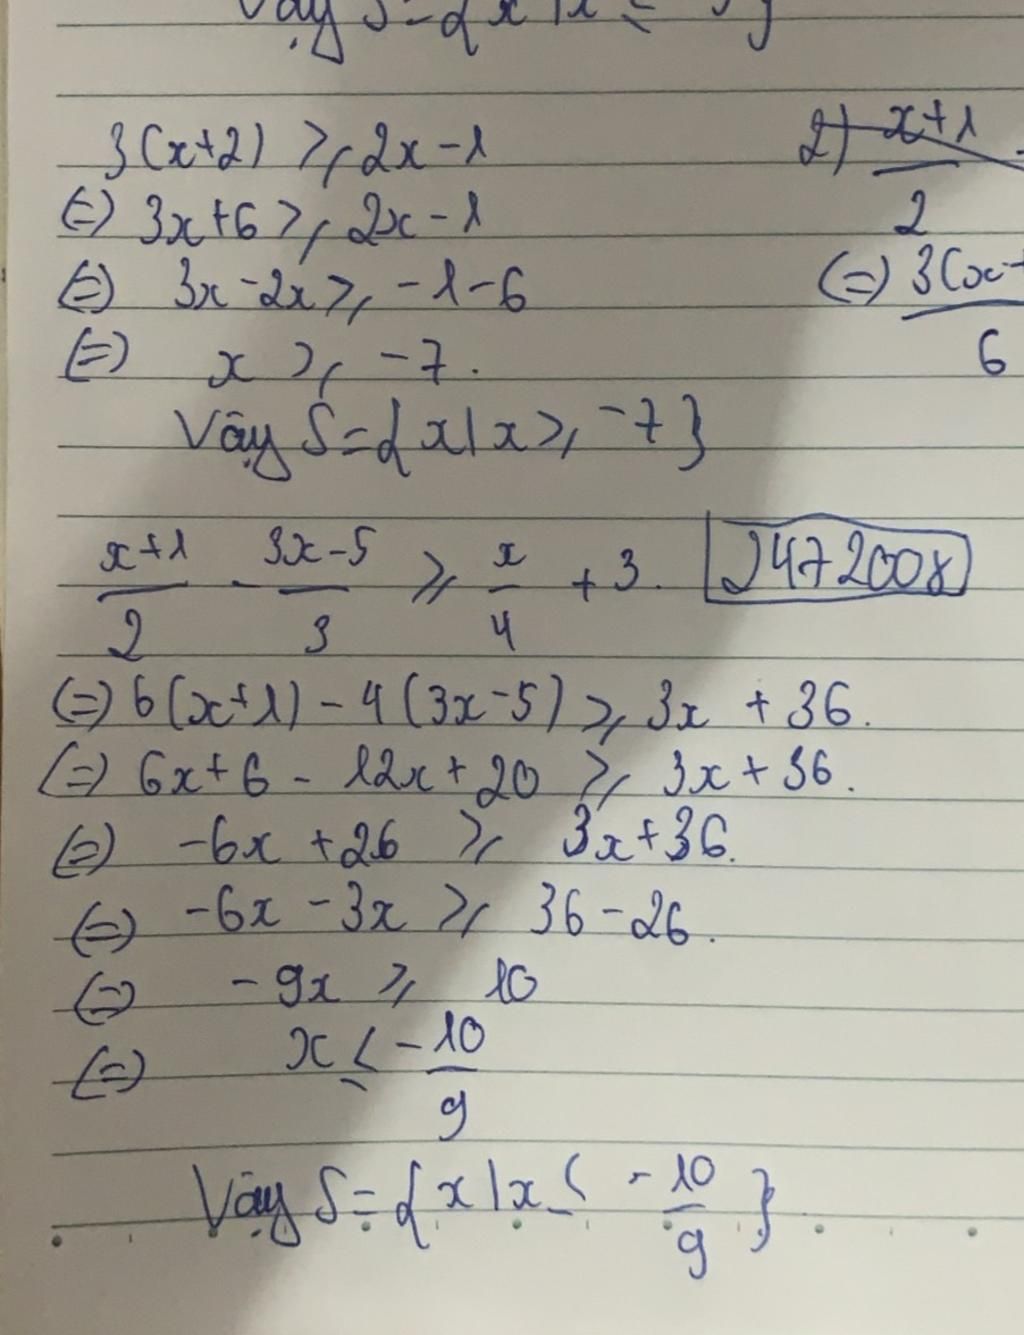 Vậy S={x|x ≤
3(x+2) ≥ 2x-1
(=) 3x+6 ≥ 2x-1
(=) 3x-2x ≥ -1-6
(=) x ≥ -7.
Vậy S={x|x ≥ -7}
2) x+1
2
(=) 3(x+
6
x+1/2 - 3x-5/3 ≥ x/4 + 3. 2472008
(=) 6(x+1) - 4(3x-5) ≥ 3x + 36.
(=) 6x+6 - 12x+20 ≥ 3x+36.
(=) -6x +26 ≥ 3x+36.
(=) -6x -3x ≥ 36-26.
(=) -9x ≥ 10
(=) x ≤ -10/9
Vậy S={x|x ≤ -10/9}